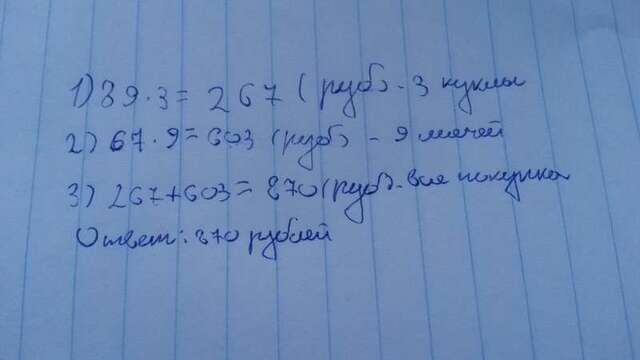 1) 89·3= 267 (руб) - 3 куклы
2) 67·9=603 (руб) - 9 мячей
3) 267+603= 870 (руб)-вся покупка
Ответ: 870 рублей